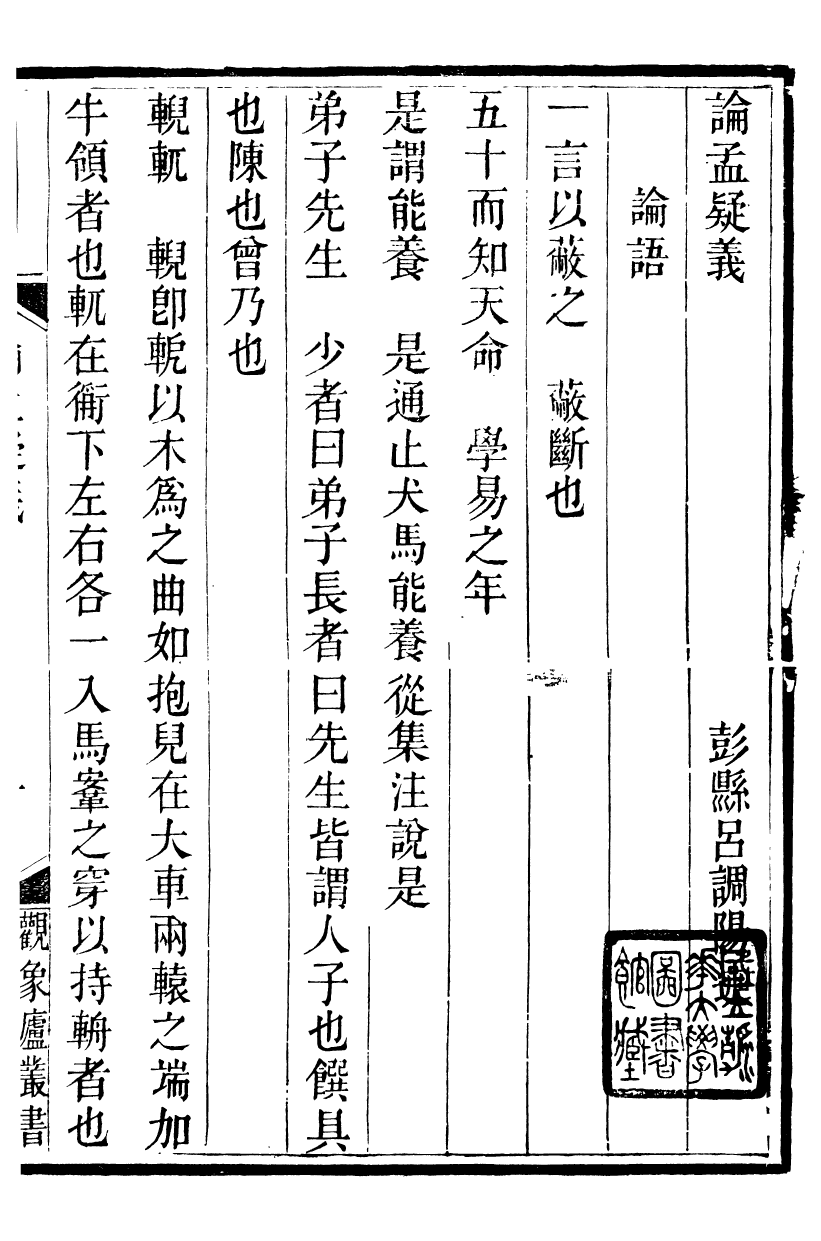 論孟疑義
彭縣呂調陽
論語
一言以蔽之　蔽斷也
五十而知天命　學易之年
是謂能養　是通止犬馬能養從集注說是
弟子先生　少者曰弟子長者曰先生皆謂人子也饌具
也陳也曾乃也
輗軏　輗卽軶以木爲之曲如抱兒在大車兩轅之端加
牛領者也軏在衡下左右各一入馬鞌之穿以持輈者也
觀象廬叢書
圖書
館藏